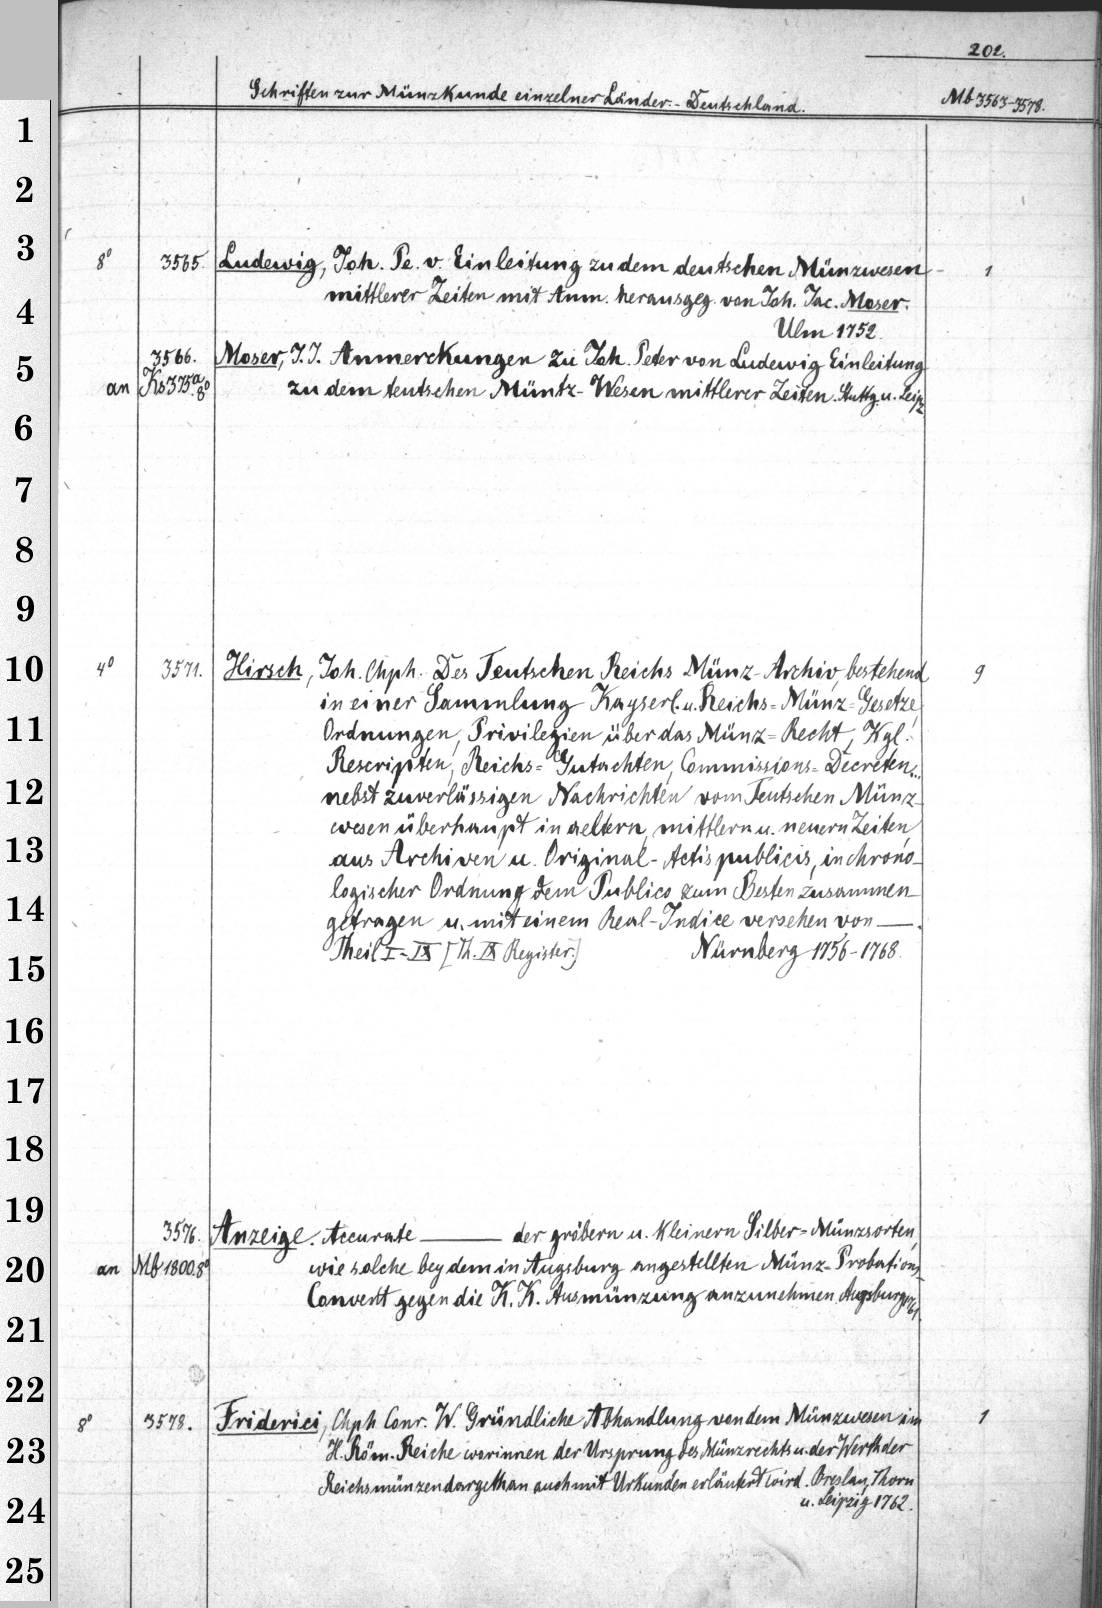 202.
Schriften zur Münzkunde einzelner Länder. - Deutschland. Mb 3563-3578.
1
2
3
8° 3565. Ludewig, Joh. Pe. v. Einleitung zu dem deutschen Münzwesen - 1
mittlerer Zeiten mit Anm. herausgeg. von Joh. Jac. Moser.
4
Ulm 1752.
3566. Moser, J. J. Anmerckungen zu Joh. Peter von Ludewig Einleitung
5
an Ks 375ª 8° zu dem teutschen Müntz-Wesen mittlerer Zeiten. Stuttg. u. Leipz
6
7
8
9
10 4° 3571. Hirsch, Joh. Chph. Des Teutschen Reichs Münz-Archiv, bestehend 9
in einer Sammlung Kayserl. u. Reichs-Münz-Gesetze,
11 Ordnungen, Privilegien über das Münz-Recht, Kgl.
Rescripten, Reichs-Gutachten, Commissions-Decreten...
12 nebst zuverlässigen Nachrichten vom Teutschen Münz-
wesen überhaupt in aeltern, mittlern u. neuern Zeiten
13 aus Archiven u. Original-Actis publicis, in chrono-
logischer Ordnung dem Publico zum Besten zusammen-
14 getragen u. mit einem Real-Indice versehen von —.
Theil I-IX [Th. IX Register.] Nürnberg 1756-1768.
15
16
17
18
19
3576. Anzeige. Accurate — der gröbern u. kleinern Silber-Münzsorten,
20 an Mb 1800.8° wie solche bey dem in Augsburg angestellten Münz-Probations-
Convent gegen die K. K. Ausmünzung anzunehmen. Augsburg 1761.
21
22
8° 3578. Friderici, Chph. Conr. W. Gründliche Abhandlung von dem Münzwesen im 1
23 H. Röm. Reiche worinnen der Ursprung des Münzrechts u. der Werth der
Reichsmünzen dargethan auch mit Urkunden erläutert wird. Breslau, Thorn
24 u. Leipzig 1762.
25